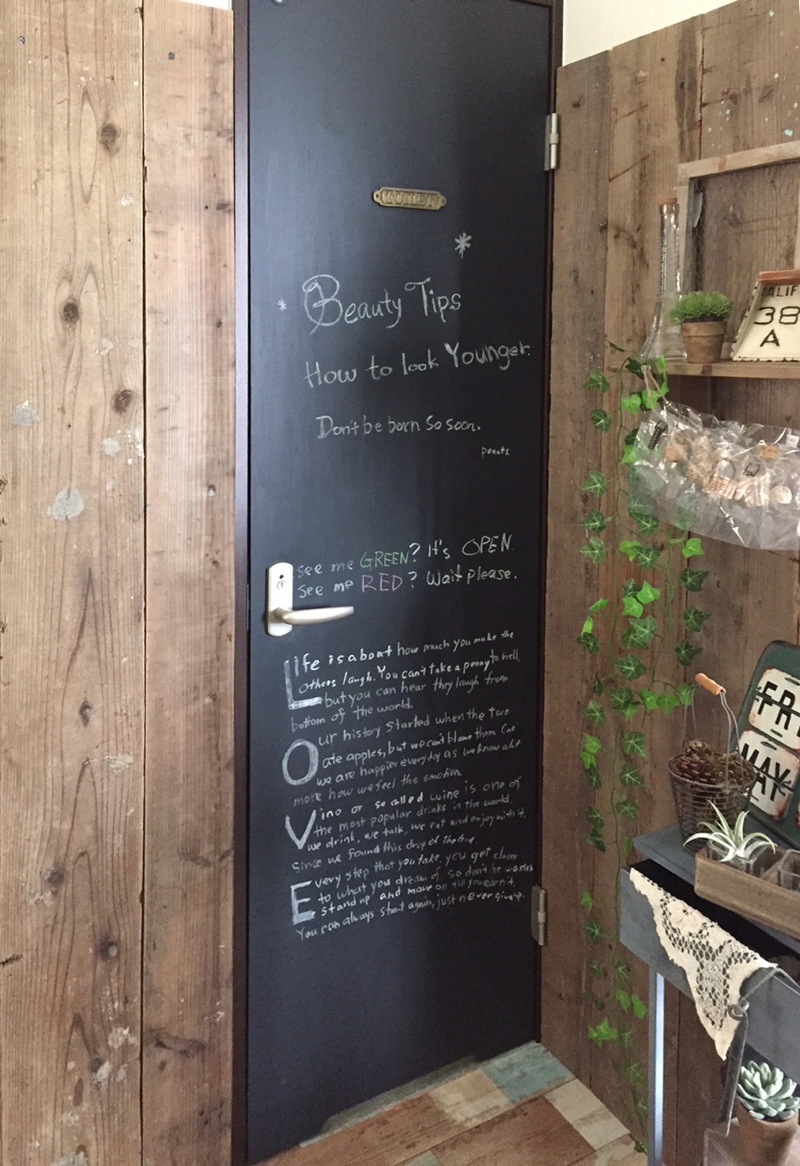 Beauty Tips
How to look Younger.
Don't be born so soon.
see me GREEN? It's OPEN.
see me RED? Wait please.
Life is about how much you make the
others laugh. You can't take a penny to hell,
but you can hear they laugh from
bottom of the world.
Our history started when the two
ate apples, but we can't blame them Cai
we are happier everyday as we know abt
more how we feel the emotion.
Vino or so called wine is one of
the most popular drinks in the world.
we drink, we talk, we eat and enjoy with it.
Since we found this drop of
Every step that you take, you get closer
to what you dream of so don't be
stand up and move on
You can always start again, just never give up.
CALIF
38
A
FRI
MAY